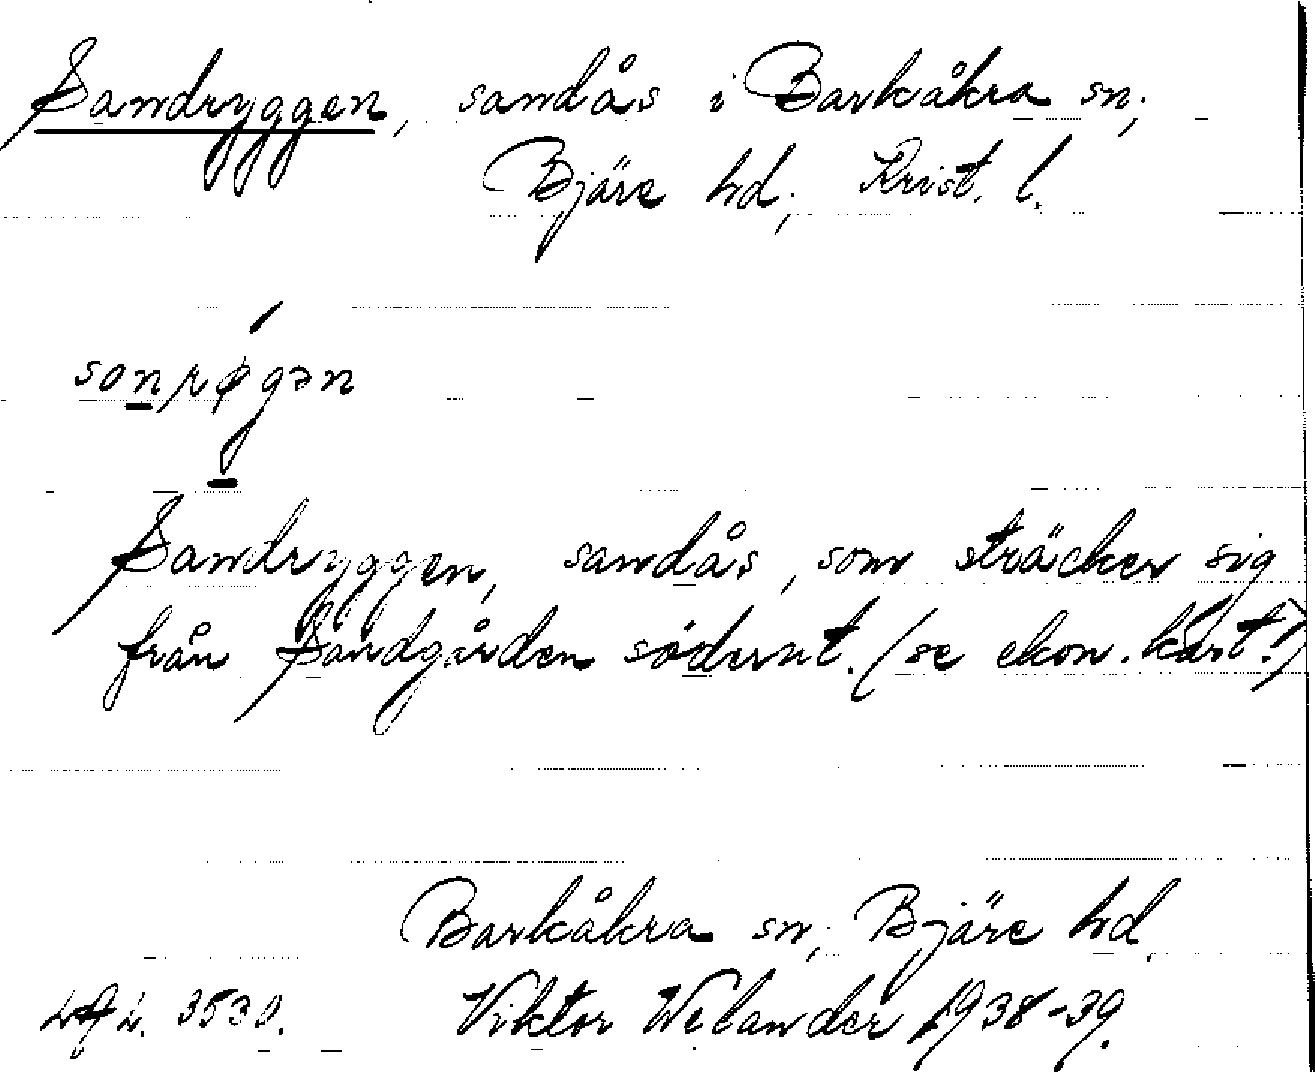 Sandryggen, sandås i Barkåkra sn;
Bjäre hd; Krist. l.
sonrøgən
Sandryggen, sandås, som sträcker sig
från Sandgården söderut. (se ekon. kart!)
Barkåkra sn; Bjäre hd
3530. Viktor Welander 1938-39.